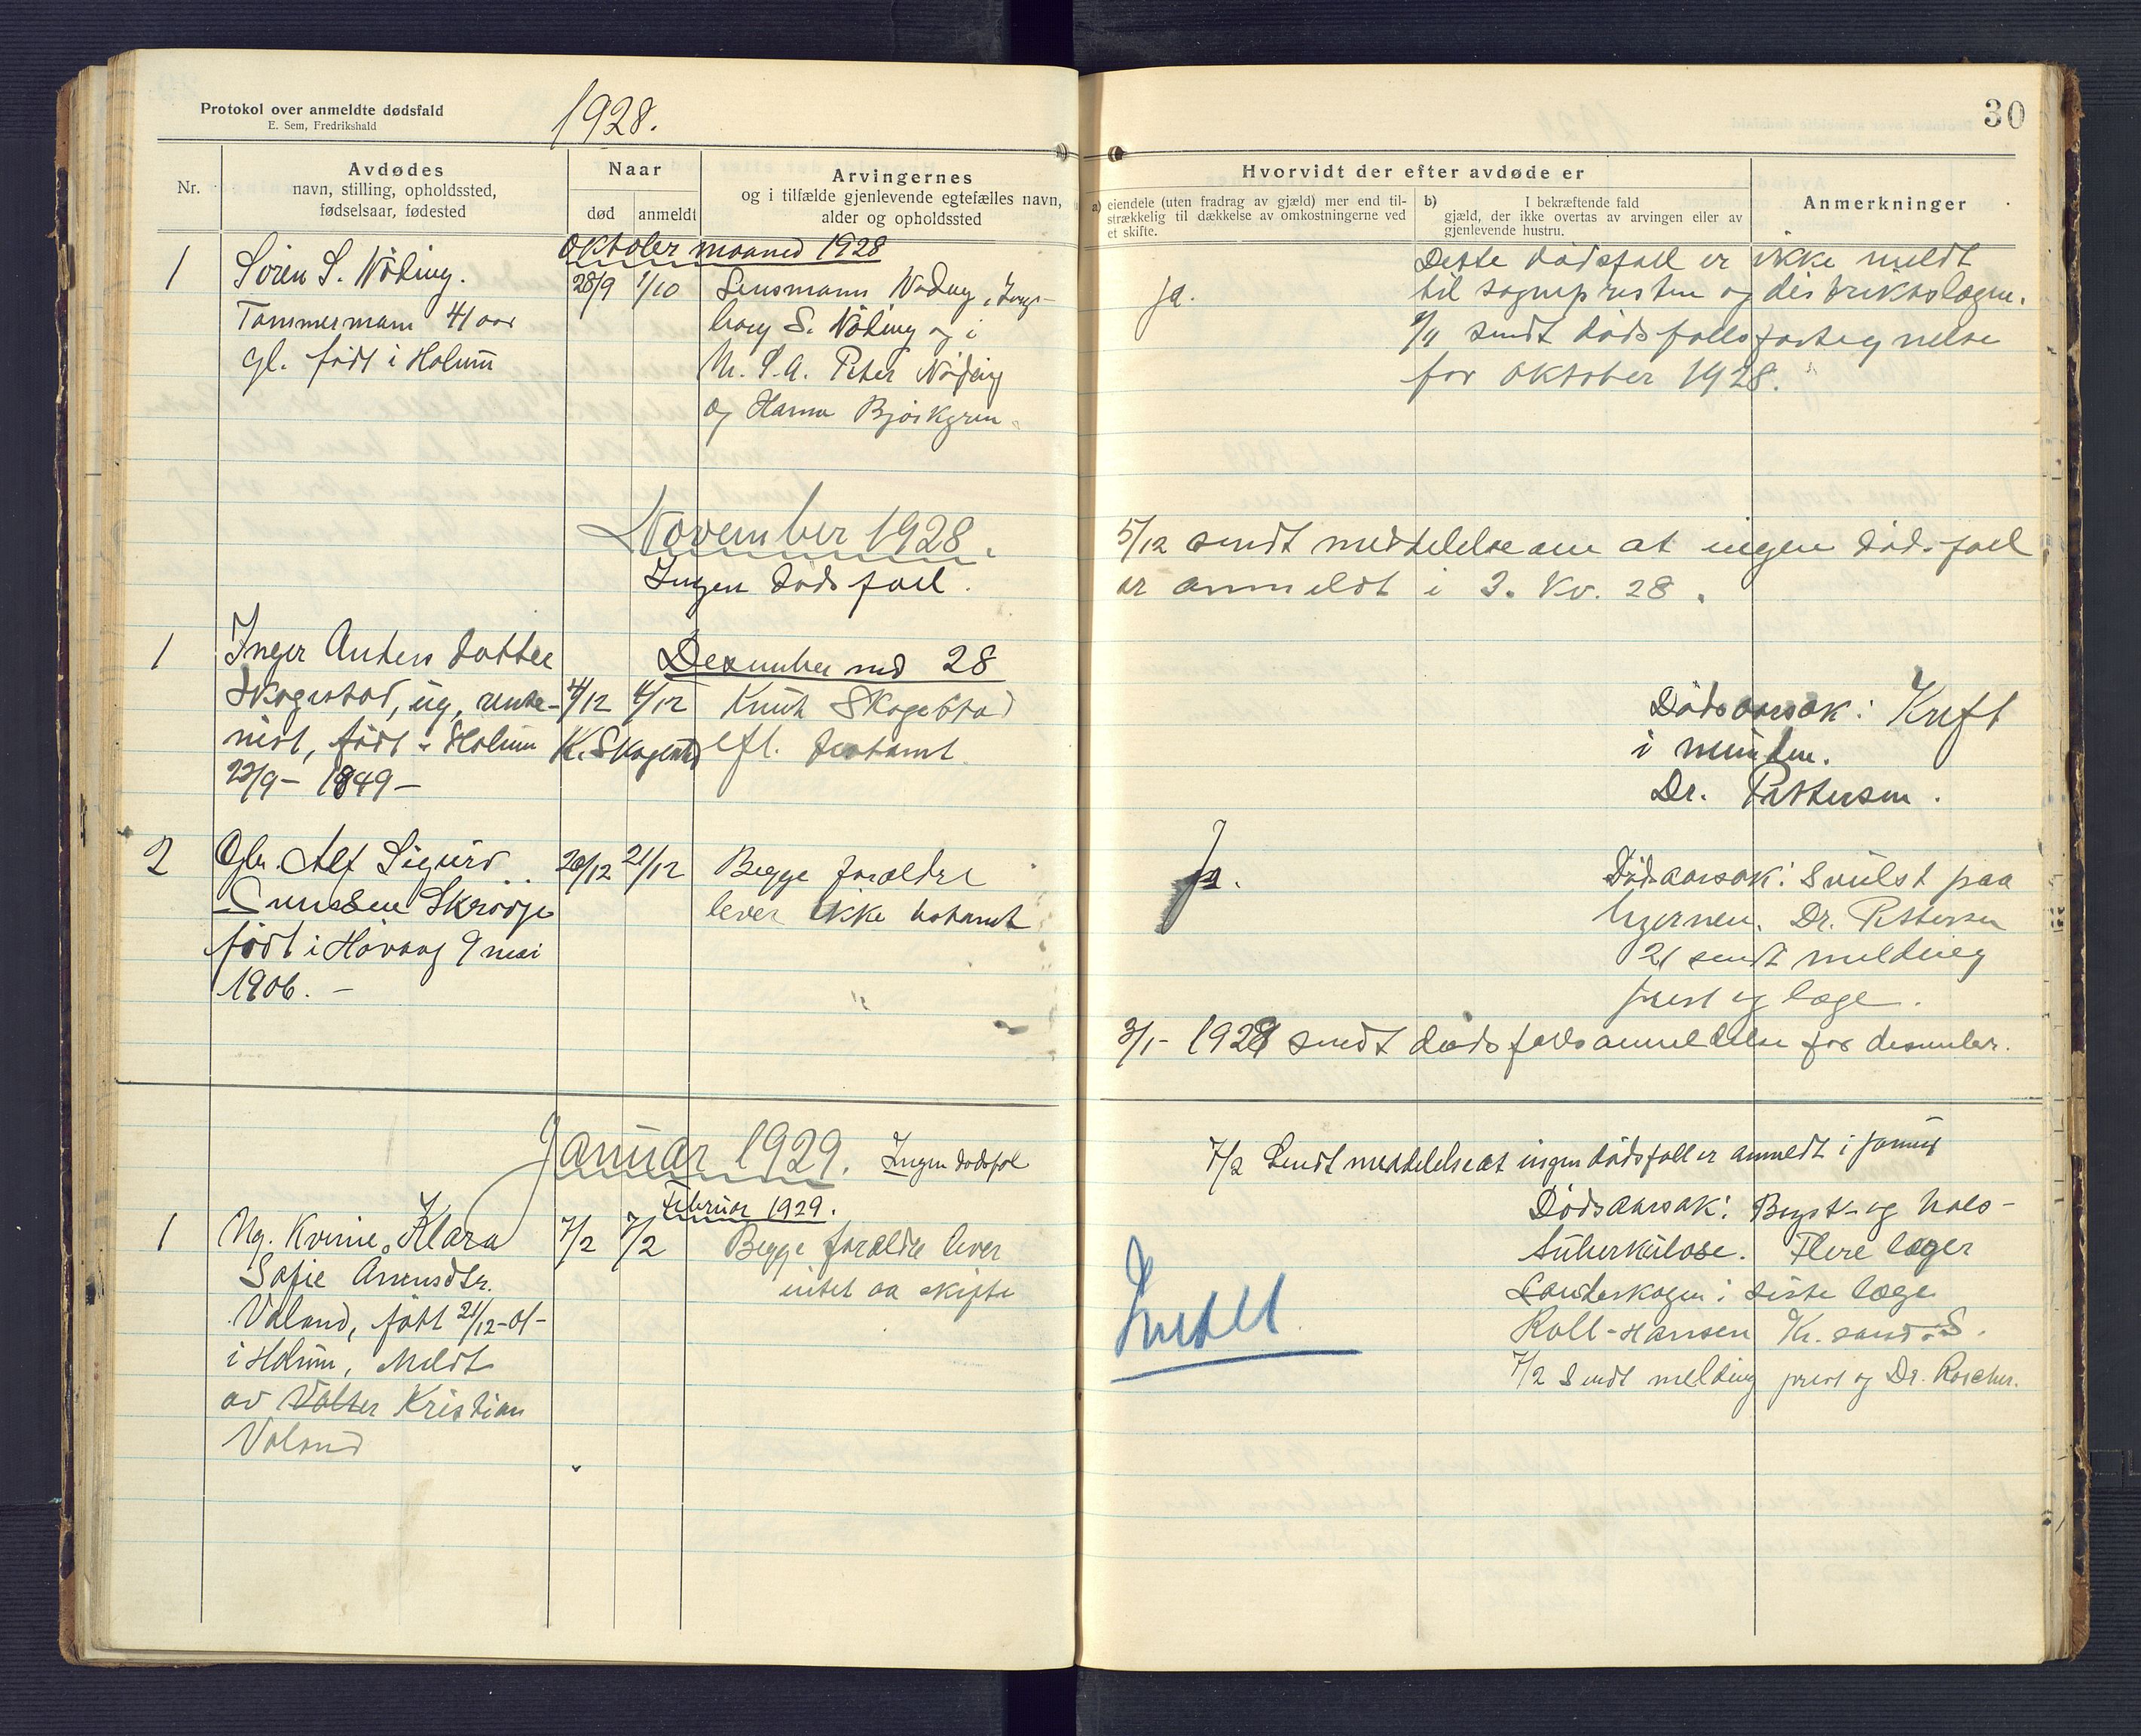 Protokol over anmeldte dødsfald
E. Sem, Fredrikshald
1928.
Nr.
Avdødes
navn, stilling, opholdssted,
fødselsaar, fødested
Naar
død
anmeldt
Arvingernes
og i tilfælde gjenlevende egtefælles navn,
alder og opholdssted
Oktober maaned 1928
1
Sören S. Nöding.
Tømmermann 41 aar
gl. født i Holum
28/9
1/10
Lensmann Nöding, Inge-
borg S. Nöding og i
N. S. A. Peter Nöding
og Hanna Bjørkgren
November 1928.
Ingen dødsfall.
1
Inger Anders datter
Skagestad, ug, rente-
nist, født i Holum
22/9 - 1849 -
Desember md 28
4/12
6/12
K. Skagestad
Knut Skagestad
efl. testamt
2
Gbr. Alf Sigurd
Skrøvje
født i Høvaag 9 mai
1906. -
20/12
21/12
Begge forældre
lever ikke testamt
Januar 1929.
Ingen dødsfal
Februar 1929.
1
Ug. Kvinne, Klara
Sofie Amundsdtr.
Valand, født 21/12-01-
i Holum, Meldt
av Valter Kristian
Valand
7/2
7/2
Begge forældre lever
intet aa skifte
30
Hvorvidt der efter avdøde er
a) eiendele (uten fradrag av gjæld) mer end til-
strækkelig til dækkelse av omkostningerne ved
et skifte.
b) I bekræftende fald
gjæld, der ikke overtas av arvingen eller av
gjenlevende hustru.
Anmerkninger
ja.
Dette dødsfall er ikke meldt
til sognepresten og distriktslægen.
/11 sendt dødsfallsfortegnelse
for oktober 1928.
5/12 sendt meddelelse om at ingen dødsfall
er anmeldt i 3. Kv. 28.
Dødsaarsak: Kreft
i munden.
Dr. Pettersen.
Ja.
Dødsaarsak: Svulst paa
hjernen. Dr. Pettersen
21 sendt melding
prest og læge.
3/1- 1929 sendt dødsfallsanmeldelse for desember.
7/2 Sendt meddelelse at ingen dødsfall er anmeldt i januar
Dødsaarsak: Bryst- og hals-
tuberkulose. Flere læger
Landeskogen i siste læge
Roll-Hansen Kr.sand S.
7/2 Sendt melding prest og Dr. Roscher.
Intet